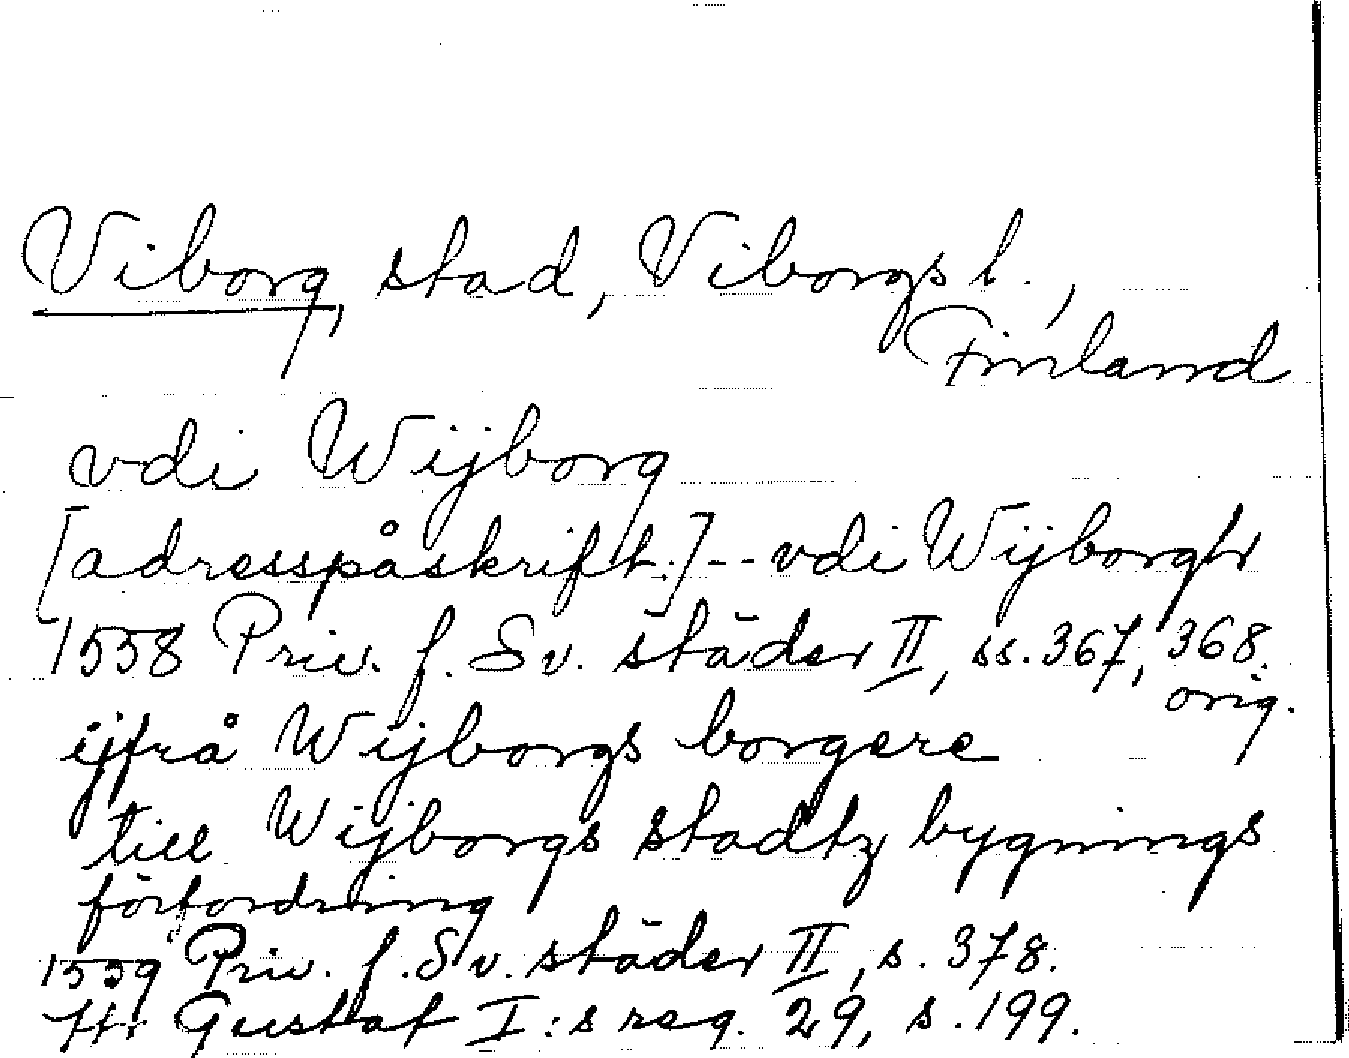 Viborg, stad, Viborgs l.,
Finland
vdi Wijborg
[adresspåskrift.]-- vdi Wijborgh
1558 Priv. f. Sv. städer II, ss. 367, 368.
orig.
ijfrå Wijborgs borgere
till Wijborgs stadtz bygnings
förfordring
1559 Priv. f. Sv. städer II, s. 378.
Gustaf I:s reg. 29, s. 199.